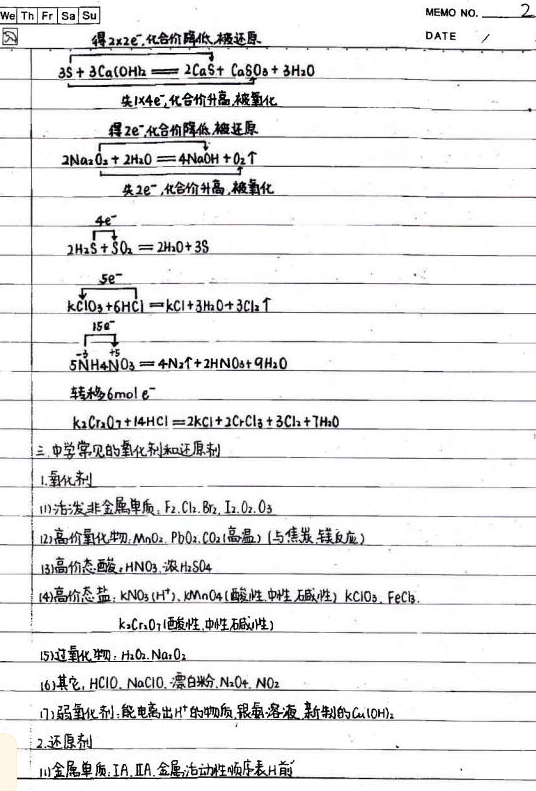 We Th Fr Sa Su
MEMO NO. 2
DATE /
得2x2e⁻,化合价降低,被还原
3S + 3Ca(OH)₂ == 2CaS + CaSO₃ + 3H₂O
失1x4e⁻,化合价升高,被氧化
得2e⁻,化合价降低,被还原
2Na₂O₂ + 2H₂O == 4NaOH + O₂↑
失2e⁻,化合价升高,被氧化
4e⁻
2H₂S + SO₂ = 2H₂O + 3S
5e⁻
KClO₃ + 6HCl = KCl + 3H₂O + 3Cl₂↑
15e⁻
-3 +5
5NH₄NO₃ == 4N₂↑ + 2HNO₃ + 9H₂O
转移6mol e⁻
K₂Cr₂O₇ + 14HCl = 2KCl + 2CrCl₃ + 3Cl₂ + 7H₂O
三.中学常见的氧化剂和还原剂
1.氧化剂
(1)活泼非金属单质:F₂.Cl₂.Br₂.I₂.O₂.O₃
(2)高价氧化物:MnO₂.PbO₂.CO₂(高温)(与焦炭.镁反应)
(3)高价态酸:HNO₃.浓H₂SO₄
(4)高价态盐:KNO₃(H⁺).KMnO₄(酸性.中性.碱性) KClO₃.FeCl₃.
K₂Cr₂O₇(酸性.中性.碱性)
(5)过氧化物:H₂O₂.Na₂O₂
(6)其它:HClO.NaClO.漂白粉.N₂O₄.NO₂
(7)弱氧化剂:能电离出H⁺的物质.银氨溶液.新制的Cu(OH)₂
2.还原剂
(1)金属单质:IA.IIA.金属活动性顺序表H前